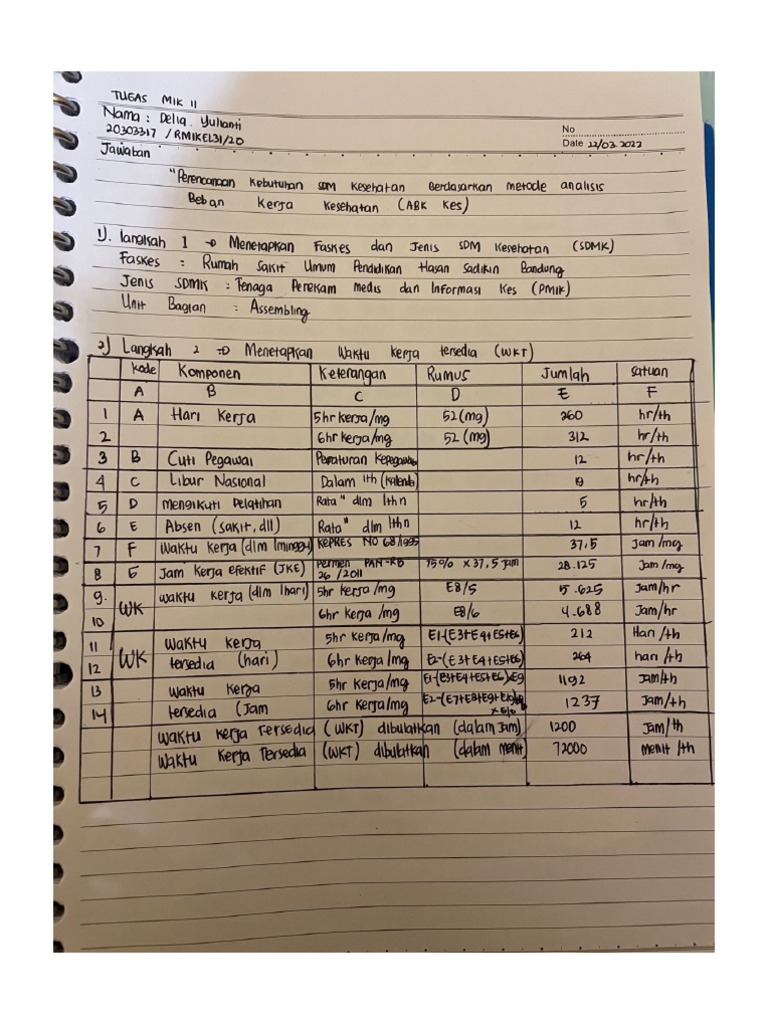 TUGAS MIK II
Nama : Delia Yulianti
20303317 / RMIKEL31/20
No
Date 22/03.2022
Jawaban
"Perencanaan Kebutuhan SDM Kesehatan Berdasarkan metode analisis
Beban Kerja Kesehatan (ABK Kes)
1). langkah 1 → Menetapkan Faskes dan Jenis SDM Kesehatan (SDMK)
Faskes : Rumah Sakit Umum Pendidikan Hasan Sadikin Bandung
Jenis SDMK : Tenaga Perekam medis dan Informasi Kes (PMIK)
Unit Bagian : Assembling
2) Langkah 2 => Menetapkan Waktu kerja tersedia (WKT)
Kode Komponen Keterangan Rumus Jumlah satuan
A B C D E F
1 A Hari Kerja 5hr kerja/mg 52 (mg) 260 hr/th
2 6hr kerja/mg 52 (mg) 312 hr/th
3 B Cuti Pegawai Peraturan 12 hr/th
4 C Libur Nasional Dalam 1th (Kalender) 19 hr/th
5 D Mengikuti Pelatihan Rata" dlm 1thn 5 hr/th
6 E Absen (sakit, dll) Rata" dlm 1thn 12 hr/th
7 F Waktu Kerja (dlm 1minggu) KEPRES NO 68/1995 37,5 Jam/mg
8 G Jam kerja efektif (JKE) Permen PAN-RB 26/2011 75% x 37,5 jam 28.125 Jam/mg
9. WK waktu kerja (dlm 1hari) 5hr kerja/mg E8/5 5.625 Jam/hr
10 6hr kerja/mg E8/6 4.688 Jam/hr
11 WK Waktu kerja 5hr kerja/mg E1-(E3+E4+E5+E6) 212 Hari/th
12 tersedia (hari) 6hr kerja/mg E2-(E3+E4+E5+E6) 264 hari/th
13 Waktu Kerja 5hr kerja/mg E1-(E3+E4+E5+E6)xE9 1192 Jam/th
14 tersedia (Jam 6hr kerja/mg 1237 Jam/th
Waktu kerja Tersedia (WKT) dibulatkan (dalam Jam) 1200 Jam/th
Waktu Kerja Tersedia (WKT) dibulatkan (dalam menit) 72000 menit/th